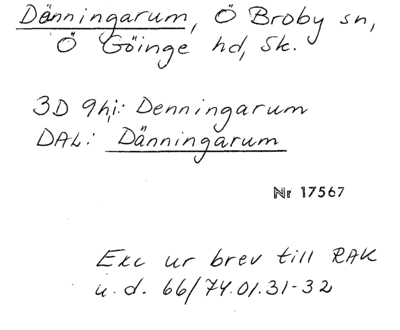 Dänningarum, Ö Broby sn,
Ö Göinge hd, Sk.
3D 9h,i: Denningarum
DAL: Dänningarum
Nr 17567
Exc ur brev till RAK
u.d. 66/74.01.31-32